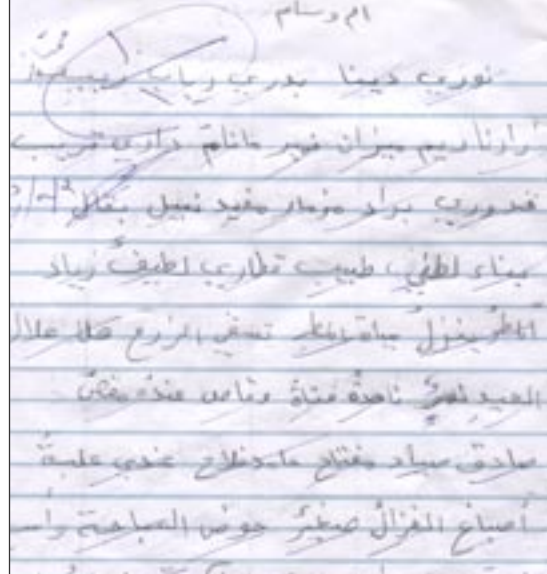 ام وسام
نوري دينا بدري رباب زبيب
رازنا ريم ميزان نمير مانام داري قريب
قدوري براد مزمار مفيد نبيل بقال
بناء لطفي، طبيب قطاري لطيف زياد
المطر ينزل مياة المطر تسقي الزرع هلا هلال
العيد ناهدة فتاة وناس عنده
صادق صياد مفتاح فلاح عندي علبة
أصباغ الغزال صغير حوض السباحة